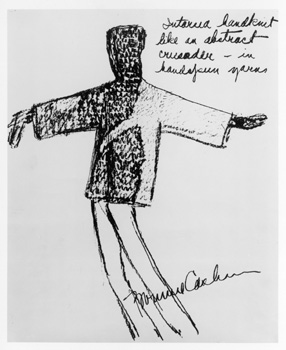 Intarsia handknit
like an abstract
crusader – in
handspun yarns
Bonnie Cashin